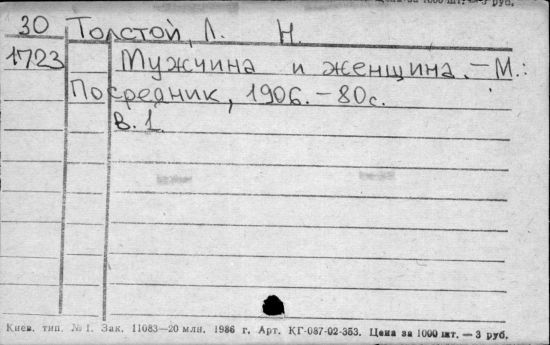 30 Толстой, Л. Н.
1723 Мужчина и женщина. – М.:
Посредник, 1906. – 80с.
В. 1.
Киев. тип. № 1. Зак. 11083—20 млн. 1986 г. Арт. КГ-087-02-353. Цена за 1000 шт. — 3 руб.